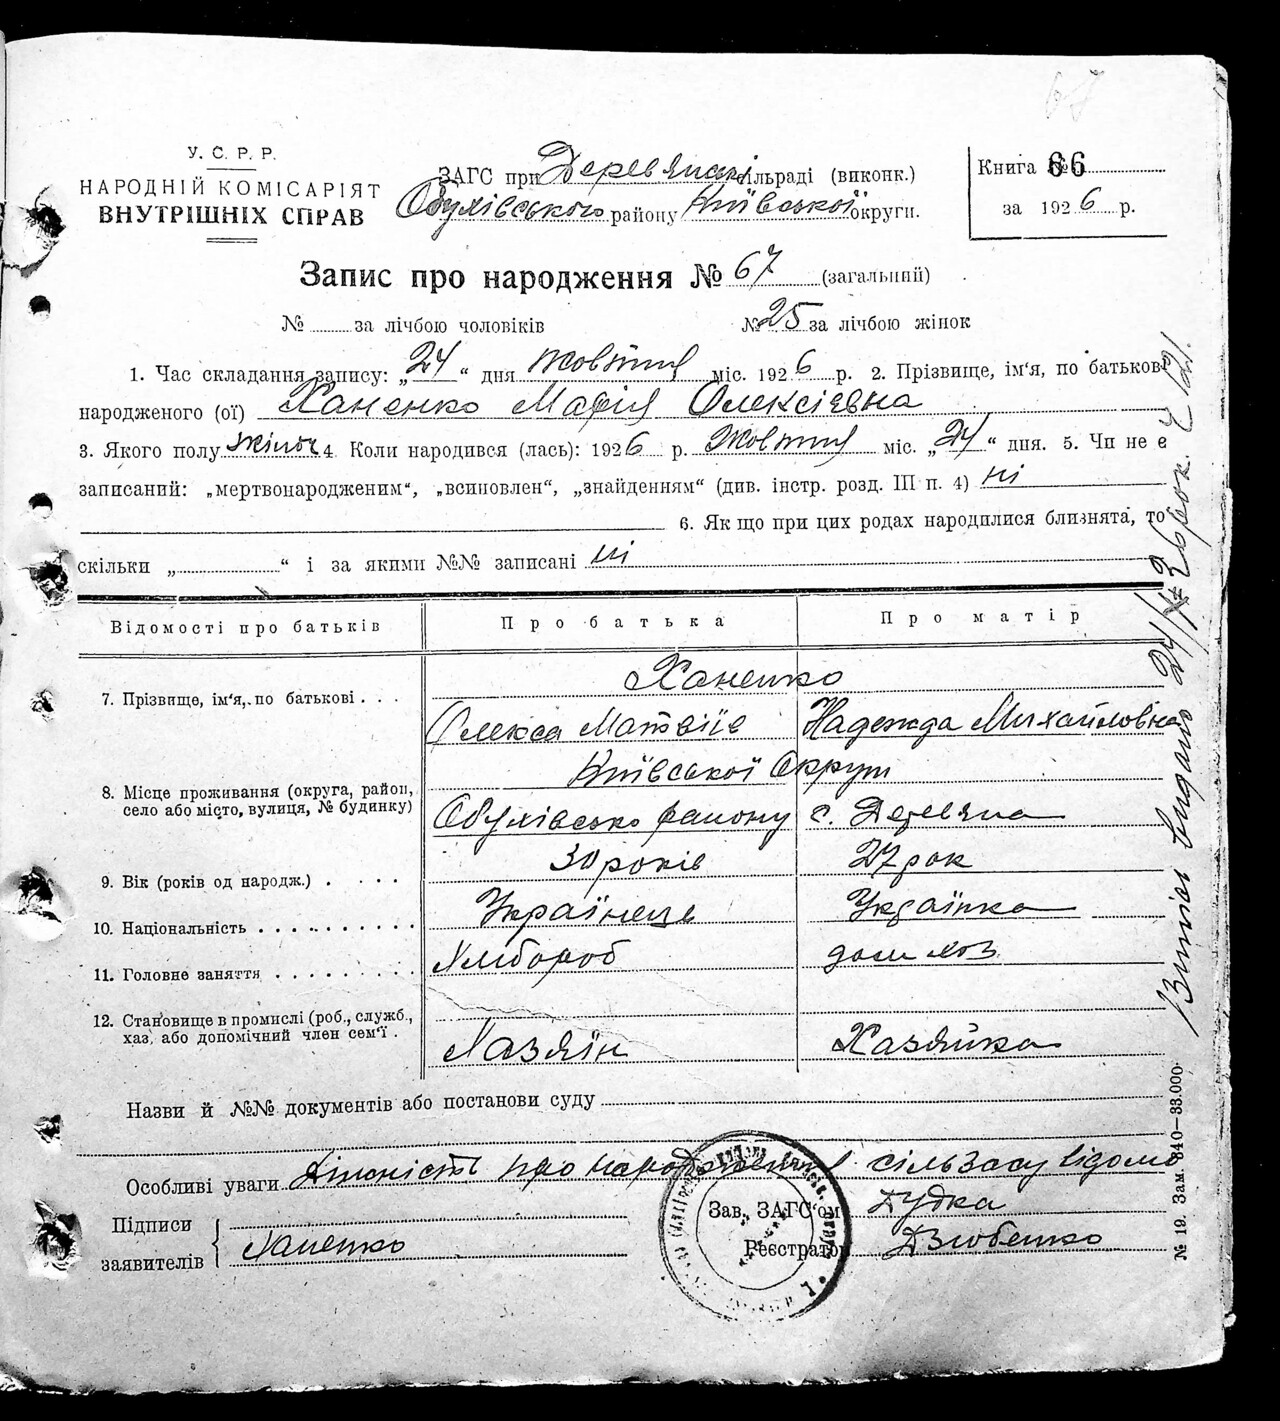 67
У. С. Р. Р.
НАРОДНІЙ КОМІСАРІЯТ
ВНУТРІШНІХ СПРАВ
ЗАГС при Деревянській сільраді (виконк.)
Обухівського району Київської округи.
Книга № 66
за 1926 р.
Запис про народження № 67 (загальний)
№ за лічбою чоловіків № 25 за лічбою жінок
1. Час складання запису: „24“ дня жовтня міс. 1926 р. 2. Прізвище, ім'я, по батькові
народженого (ої) Ханенко Марія Олексіевна
3. Якого полу жіноч 4. Коли народився (лась): 1926 р. жовтня міс. „24“ дня. 5. Чи не є
записаний: „мертвонародженим“, „всиновлен“, „знайденням“ (див. інстр. розд. III п. 4) ні
6. Як що при цих родах народилися близнята, то
скільки „ “ і за якими №№ записані ні
Відомості про батьків Про батька Про матір
7. Прізвище, ім'я, по батькові . . . Ханенко
Олекса Матвіїв Надежда Михайловна
Київської Округи
8. Місце проживання (округа, район,
село або місто, вулиця, № будинку) Обухівсько району с. Деревяна
9. Вік (років од народж.) . . . . 30 років 27 рок
10. Національність . . . . . . . . . . Українець Українка
11. Головне заняття . . . . . . . . . Хлібороб дом хоз
12. Становище в промислі (роб., служб.,
хаз. або допомічний член сем'ї . Хазяїн Хазяйка
Назви й №№ документів або постанови суду
Особливі уваги Дійсність про народження сільзагсу відомо
Підписи
заявителів Ханенко
Зав. ЗАГС'ом Дудка
Реєстратор Дзюбенко
Витяг видано 24/X 26 рок.
№ 19. Зам. 840—33.000.